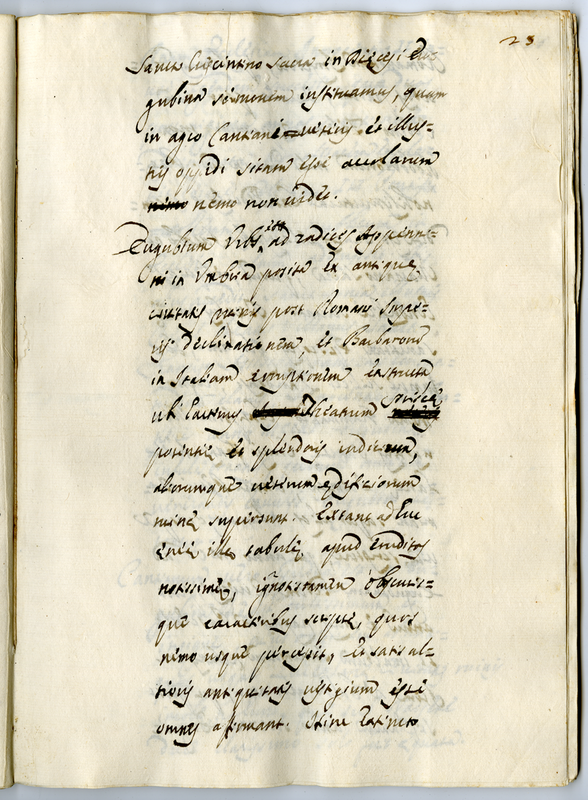 23
Sancto Crescentino sacra in Diecesi Eu-
gubina sermonem instituamus, quam
in agro Cantiani veteris et illus=
tris oppidi sitam esse accolarum
nemo non videt.
Eugubium Urbs ad radices Appenni=
ni in Umbria posita ex antiquę
civitatis ruinis post Romani Impe=
rij declinationem, et Barbarorum
in Italiam eruptionem extructa
ubi Theatrum priscę
potentię et splendoris indicium,
aliorumque veterum ędificiorum
ruinę supersunt. Extant adhuc
ęneę illę tabulę apud eruditos
notissimę, ignotis tamen obscuris=
que caracteribus scriptę, quos
nemo usque percepit, et satis al=
tioris antiquitatis vestigium esse
omnes affirmant. Hinc